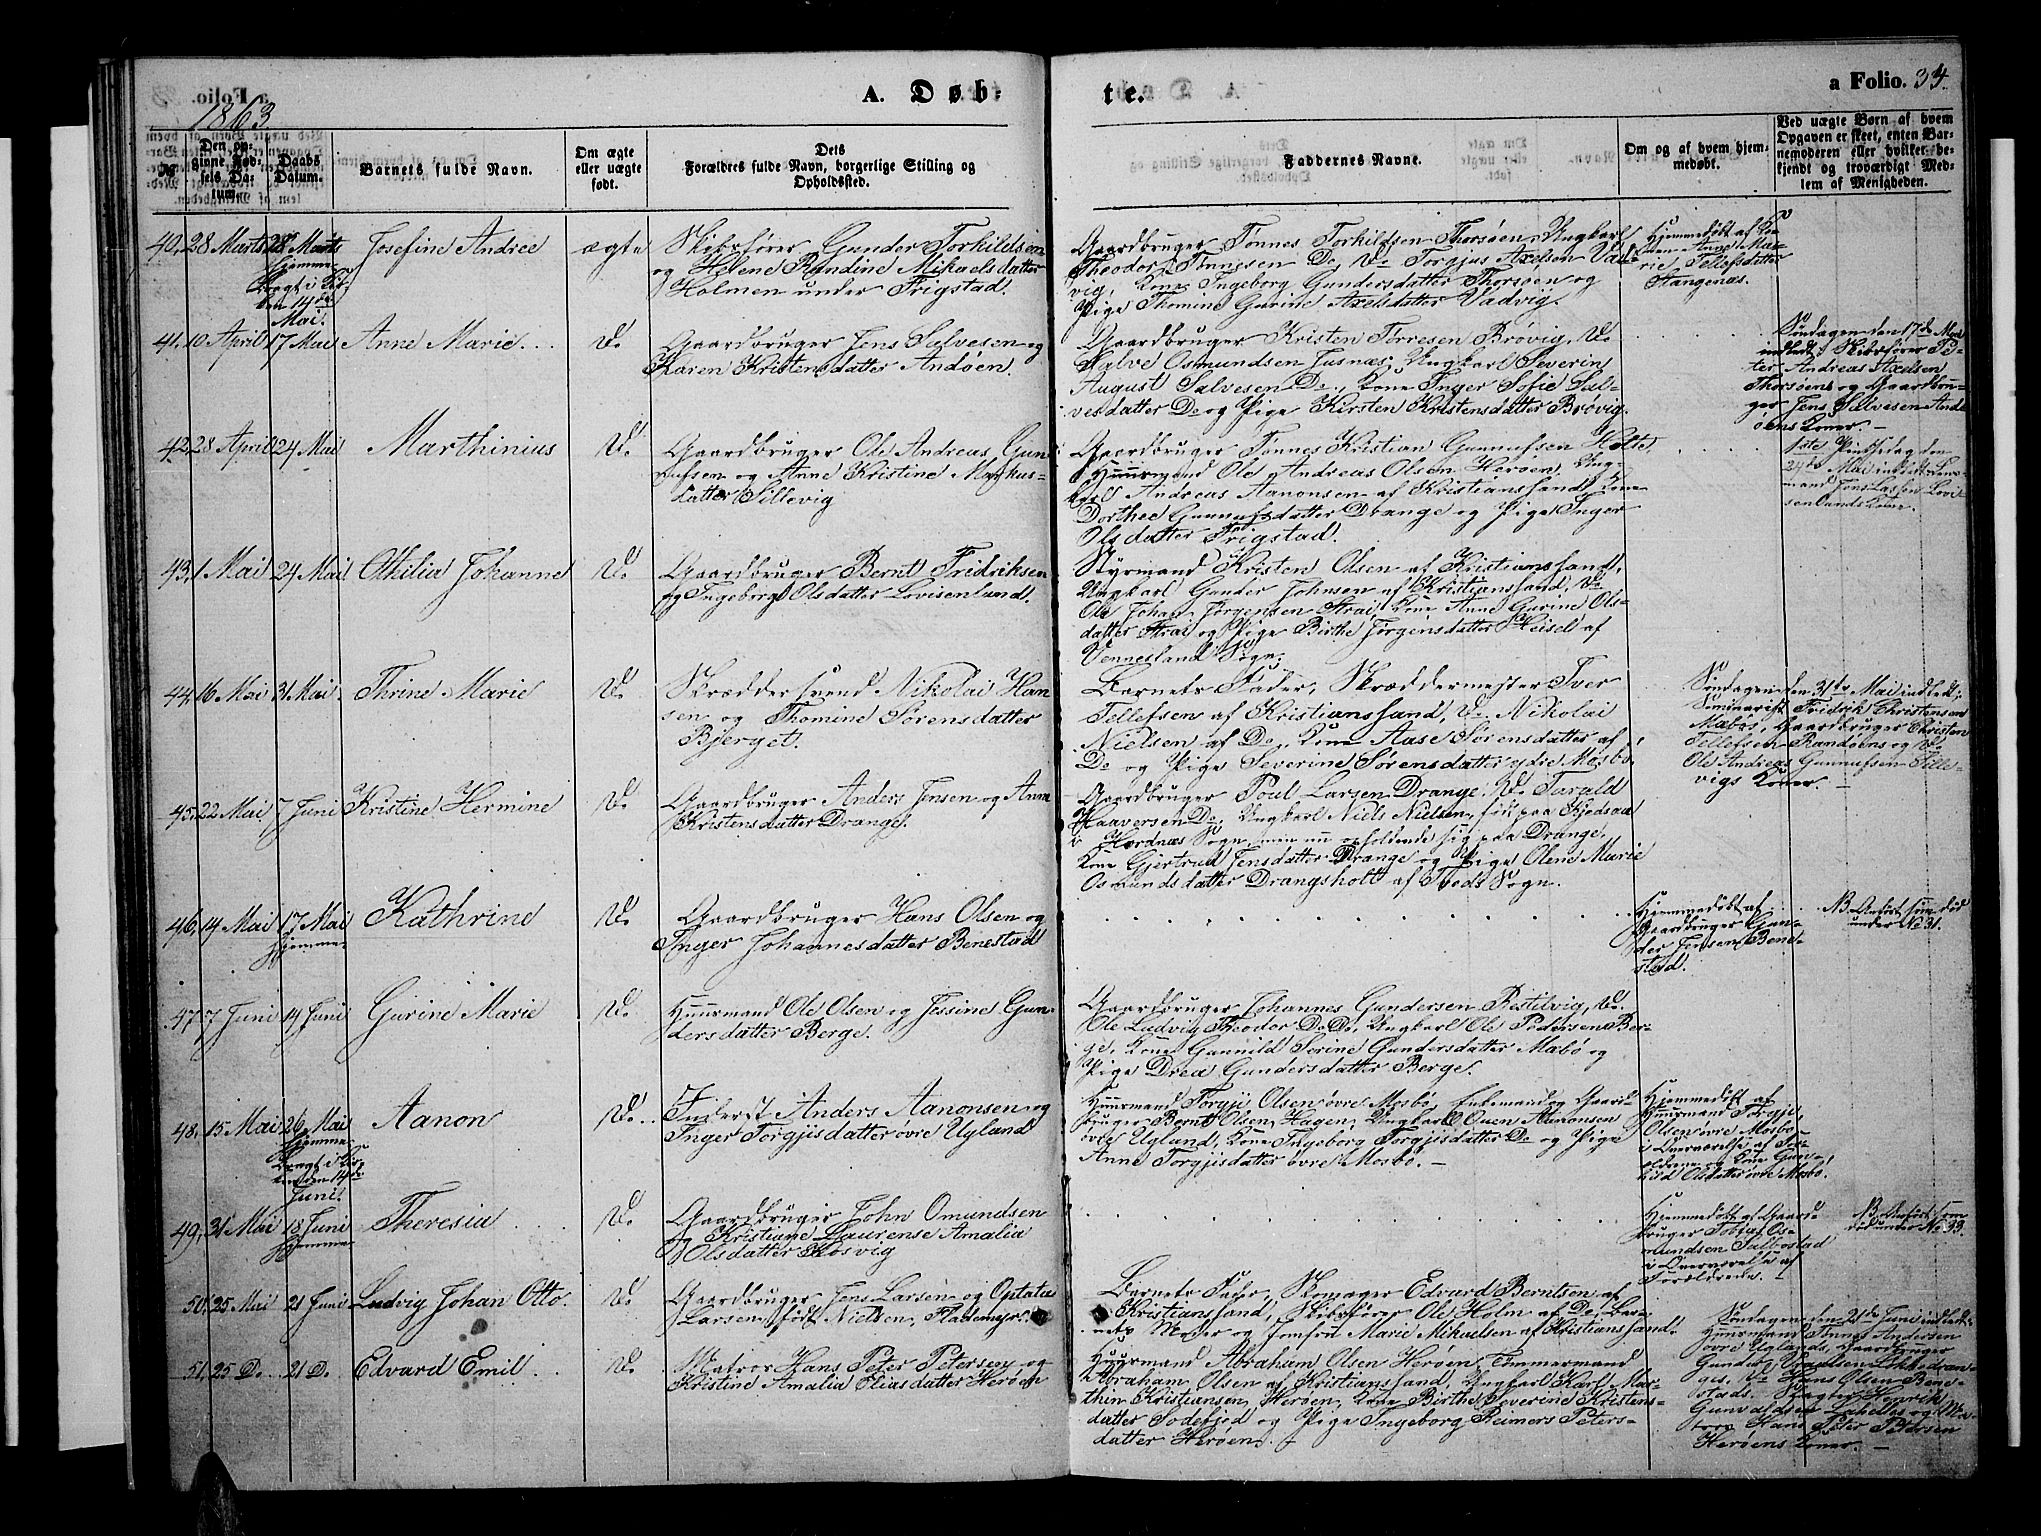 1863.
A. Døb-
te.
a Folio. 34.
No
Den opgivne Fødsels Datum.
Daabs Datum.
Barnets fulde Navn.
Om ægte eller uægte født.
Dets Forældres fulde Navn, borgerlige Stilling og Opholdssted.
Faddernes Navne.
Om og af hvem hjemmedøbt.
Ved uægte Børn af hvem Opgaven er skeet, enten Barnemoderen eller hvilket bekjendt og troværdigt Medlem af Menigheden.
40. 28 Marts 28 Marts Josefine Andree ægte Skibsfører Gunder Torkildsen
hjemme. og Helene Randine Mikaelsdatter
Bragt i Kirken 14de Mai. Holmen under Frigstad.
Gaardbruger Tønnes Torkildsen Thorsøen, Ungkarl
Theodor Tønnesen Do, Do Torgjus Axelsen Vad-
vig, Kone Ingeborg Gundersdatter Thorsøen og
Pige Thomine Gurine Axelsdatter Vadvig.
Hjemmedøbt af Ko-
nen Anne Ma-
rie Tellefsdatter
Stangenæs.
41. 10 April 17 Mai Anne Marie Do Gaardbruger Jens Salvesen og
Karen Kristensdatter Andøen.
Gaardbruger Kristen Tørresen Brøvig, Do
Salve Osmundsen Fusnæs, Ungkarl Severin
August Salvesen Do, Kone Inger Sofie Sal-
vesdatter Do og Pige Kirsten Kristensdatter Brøvig.
Søndagen den 17de Mai
indledt: Skibsfører Pe-
ter Andreas Axelsen
Thorsøens og Gaardbru-
ger Jens Salvesen And-
øens Koner.
42. 28 April 24 Mai Marthinius Do Gaardbruger Ole Andreas Gun-
nufsen og Anne Kristine Markus-
datter Tillevig
Gaardbruger Tønnes Kristian Gunnufsen Holte,
Huusmand Ole Andreas Olsen Herøen, Ung-
karl Andreas Aanonsen af Kristianssand, Kone
Dorthee Gunnufsdatter Drange og Pige Inger
Olsdatter Frigstad.
1ste Pintsedag den
24de Mai indledt: Huus-
mand Jens Larsen Lovi-
senlunds Kone.
43. 1 Mai 24 Mai Othilia Johanne Do Gaardbruger Bernt Fridriksen
og Ingeborg Olsdatter Lovisenlund.
Styrmand Kristen Olsen af Kristianssand,
Ungkarl Gunder Johnsen af Kristianssand, Do
Ole Johan Jørgensen Strai, Kone Anne Gurine Ols-
datter Strai og Pige Birthe Jørgensdatter Heisel af
Vennesland Sogn.
44. 16 Mai 31 Mai Thrine Marie Do Skræddersvend Nikolai Han-
sen og Thomine Sørensdatter
Bjerget.
Barnets Fader, Skræddermester Iver
Tellefsen af Kristianssand, Do Nikolai
Nielsen af Do, Kone Aase Sørensdatter af
Do og Pige Severine Sørensdatter ydre Mosbø.
Søndagen den 31te Mai indledt:
Seminarist Fredrik Christensen
Mæbøs, Gaardbruger Christen
Tellefsen Randøens og Do
Ole Andreas Gunnufsen Tille-
vigs Koner.
45. 22 Mai 7 Juni Kristine Hermine Do Gaardbruger Anders Jensen og Anne
Kristensdatter Drange.
Gaardbruger Poul Larsen Drange, Do Tarald
Haaversen Do, Ungkarl Niels Nielsen, født paa Kjedsaa
i Hordnæs Sogn, men nu opholdende sig paa Drange,
Kone Gjertrud Jensdatter Drange og Pige Olene Marie
Osmundsdatter Drangsholt af Tveds Sogn.
46. 14 Mai 17 Mai Kathrine Do Gaardbruger Hans Olsen og
hjemme. Inger Johannesdatter Benestad
Hjemmedøbt af
Gaardbruger Gun-
der Jensen Bene-
stad.
NB Anført som død
under No 31.
47. 7 Juni 14 Juni Gurine Marie Do Huusmand Ole Olsen og Jessine Gun-
dersdatter Berge.
Gaardbruger Johannes Gundersen Resttilvig, Do
Ole Ludvig Theodor Do Do, Ungkarl Ole Pedersen Ber-
ge, Kone Gunnild Sørine Gundersdatter Mæbø og
Pige Drea Gundersdatter Berge.
48. 15 Mai 26 Mai Aanon Do Inderst Anders Aanonsen og
hjemme. Inger Torgjisdatter øvre Ugland
Bragt i Kirken den 14de Juni.
Huusmand Torgji Olsen øvre Mosbø, Enkemand og Gaard-
bruger Bernt Olsen Hagen, Ungkarl Ouen Aanonsen
øvre Ugland, Kone Ingeborg Torgjisdatter Do og Pige
Anne Torgjisdatter øvre Mosbø.
Hjemmedøbt af
Huusmand Torgji
Olsen øvre Mosbø
i Overværelse af For-
ældrene og Kone Gun-
hild Olsdatter øvre Mosbø.
49. 31 Mai 18 Juni Theresia Do Gaardbruger John Omundsen
hjemme og Kristiane Laurense Amalia
Olsdatter Kosvig
Hjemmedøbt af Gaard-
bruger Tobias Os-
mundsen Salbostad
i Overværelse af
Forældrene.
NB Anført som
død under No 33.
50. 25 Mai 21 Juni Ludvig Johan Otto. Do Gaardbruger Jens Larsen og Optatia
Larsen, født Nielsen, Flademyr.
Barnets Fader, Skomager Edvard Berntsen af
Kristianssand, Skibsfører Ole Holm af Do, Bar-
nets Moder og Jomfru Marie Mikaelsen af Kristianssand.
Søndagen den 21de Juni indledt:
Huusmand Tønnes Andersen
øvre Uglands, Gaardbruger
51. 25 Do 21 Do Edvard Emil Do Matros Hans Peter Petersen og
Kristine Amalia Eliasdatter Herøen
Huusmand Abraham Olsen Herøen, Tømmermand
Abraham Olsen af Kristianssand, Ungkarl Karl Mar-
thin Kristiansen, Herøen, Kone Birthe Severine Kristens-
datter Sodefjed og Pige Ingeborg Reimers Peters-
datter Herøen.
Do Hans Olsen Bene-
stads,
Hans Peter Petersen
Herøens Koner.